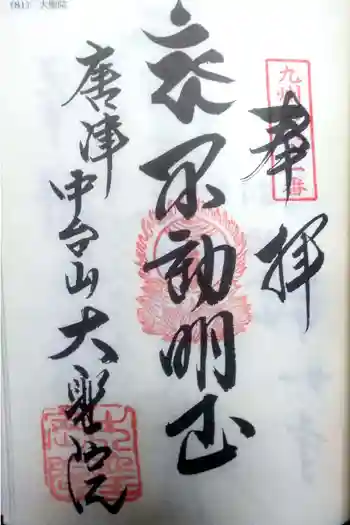 (81) 大聖院
奉拝
交不動明王
唐津
中台山
大聖院